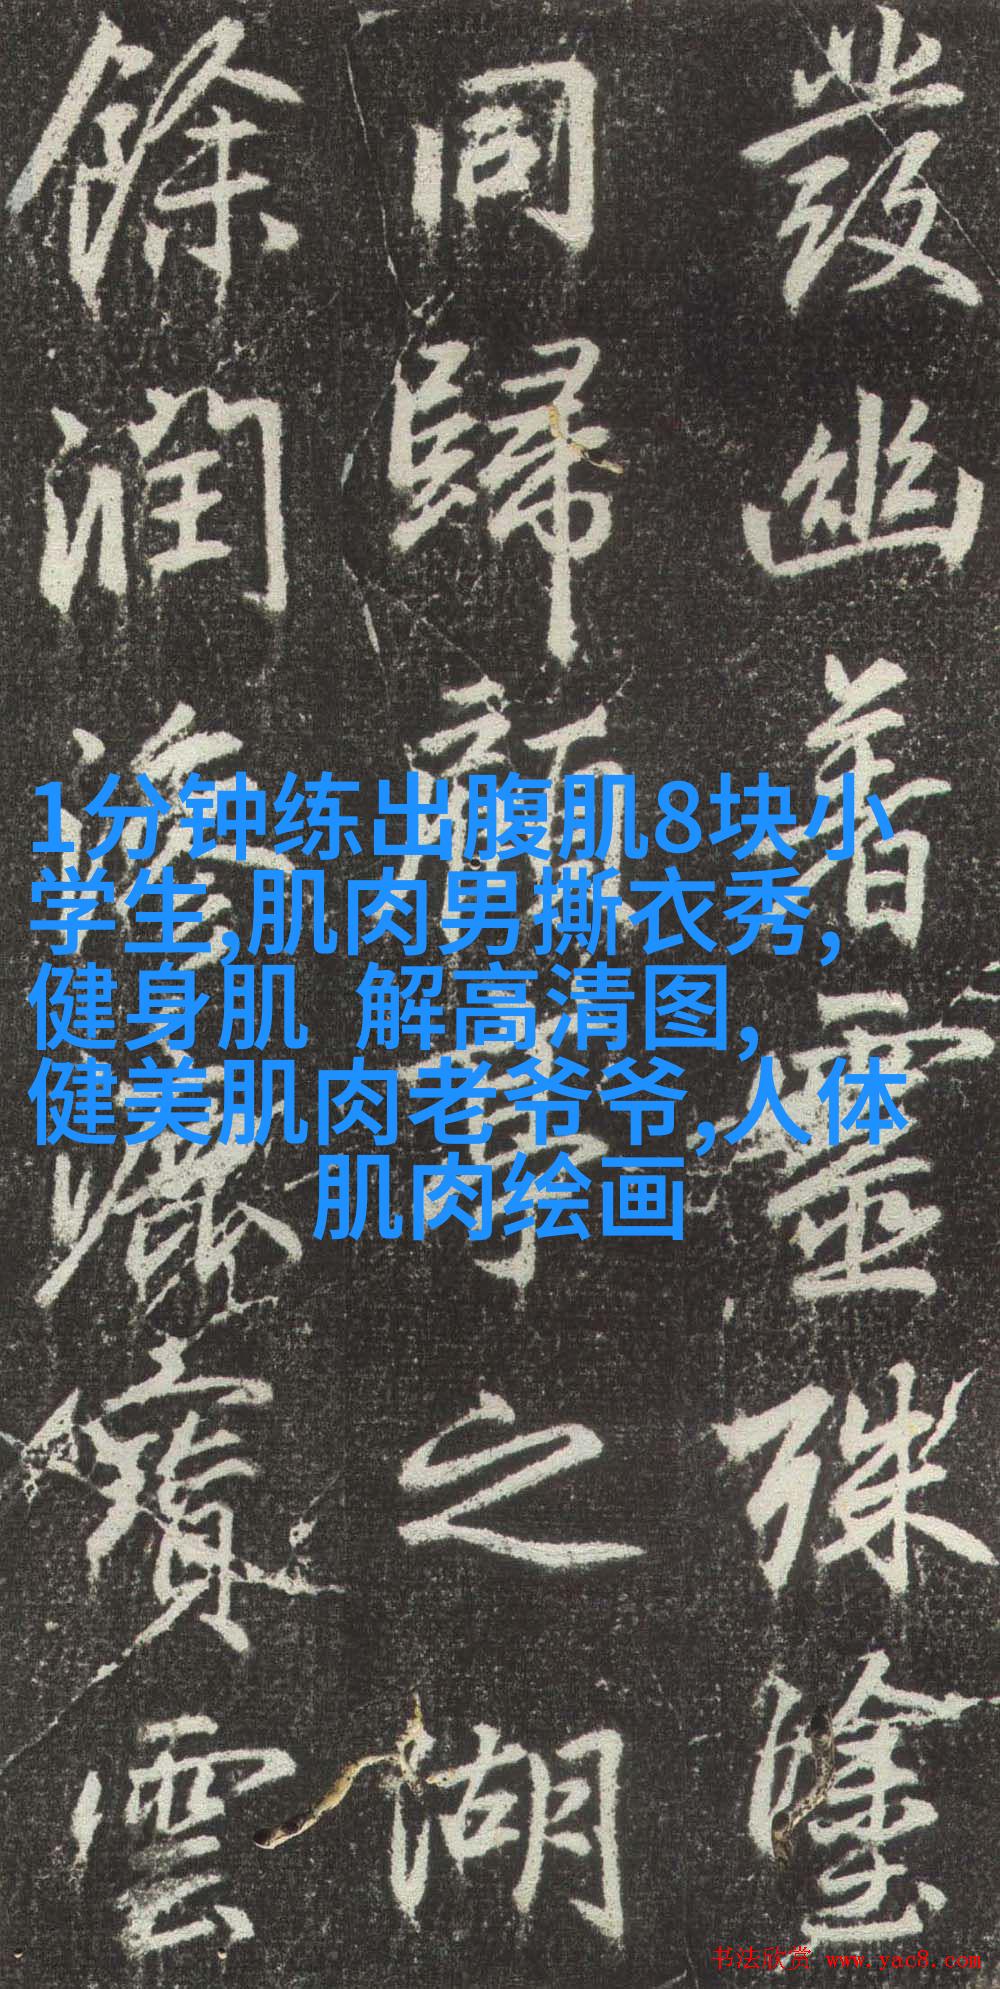 發幽着靈殊
同歸之湖
餘潤滲漉雲
1分钟练出腹肌8块小
学生,肌肉男撕衣秀,
健身肌 解高清图,
健美肌肉老爷爷,人体
肌肉绘画
书法欣赏 www.yac8.com